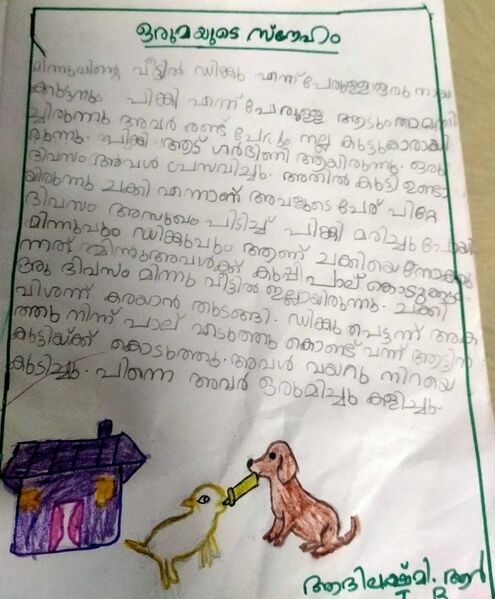 ഒരുമയുടെ സ്നേഹം
മിന്നുവിന്റെ വീട്ടിൽ ഡിങ്കു എന്ന് പേരുള്ള ഒരു നായ
ക്കുട്ടനും പിങ്കി എന്ന് പേരുള്ള ആടും താമസി
ച്ചിരുന്നു അവർ രണ്ട് പേരും നല്ല കൂട്ടുകാരായി
രുന്നു. പിങ്കി ആട് ഗർഭിണി ആയിരുന്നു. ഒരു
ദിവസം അവൾ പ്രസവിച്ചു. അതിൽ കുട്ടി ഉണ്ടാ
യിരുന്നു ചക്കി എന്നാണ് അവളുടെ പേര് പിറ്റേ
ദിവസം അസുഖം പിടിച്ച് പിങ്കി മരിച്ചു പോയി
മിന്നുവും ഡിങ്കുവും ആണ് ചക്കിയെ നോക്കു
ന്നത് മിന്നു അവൾക്ക് കുപ്പി പാല് കൊടുക്കും
ഒരു ദിവസം മിന്നു വീട്ടിൽ ഇല്ലായിരുന്നു. ചക്കി
വിശന്ന് കരയാൻ തുടങ്ങി. ഡിങ്കു പെട്ടന്ന് അക
ത്തു നിന്ന് പാല് എടുത്തു കൊണ്ട് വന്ന് ആട്ടിൻ
കുട്ടിയ്ക്ക് കൊടുത്തു. അവൾ വയറു നിറയെ
കുടിച്ചു. പിന്നെ അവർ ഒരുമിച്ചു കളിച്ചു
ആദിലക്ഷ്മി. ആർ
I B